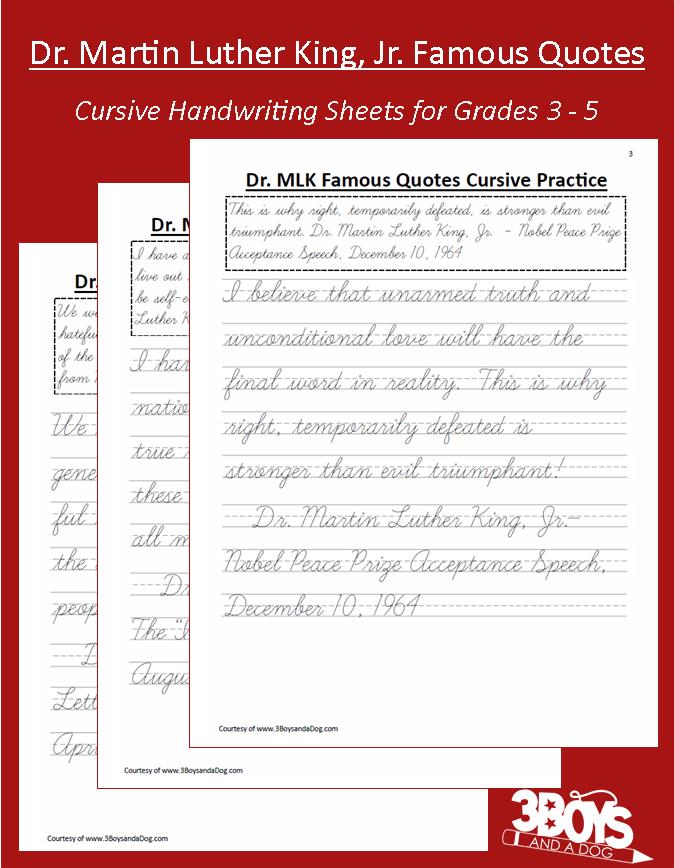 Dr. Martin Luther King, Jr. Famous Quotes
Cursive Handwriting Sheets for Grades 3 - 5
3
Dr. MLK Famous Quotes Cursive Practice
This is why right, temporarily defeated, is stronger than evil
triumphant. Dr. Martin Luther King, Jr. - Nobel Peace Prize
Acceptance Speech, December 10, 1964
I believe that unarmed truth and
unconditional love will have the
final word in reality. This is why
right, temporarily defeated is
stronger than evil triumphant!
Dr. Martin Luther King, Jr.-
Nobel Peace Prize Acceptance Speech,
December 10, 1964
Courtesy of www.3BoysandaDog.com
Dr.
I have a
live out
be self-e
Luther K
I hav
natio
true
these
all m
Dr
The "I
Augu
Courtesy of www.3BoysandaDog.com
Dr.
We w
hatefu
of the
from
We
gene
ful
the
peop
D
Lett
Apri
Courtesy of www.3BoysandaDog.com
3BOYS
AND A DOG